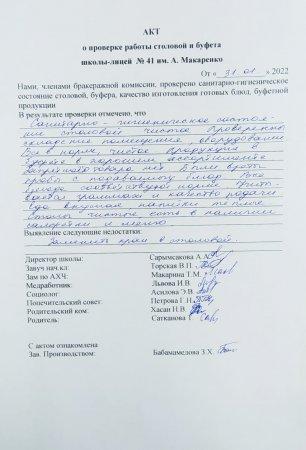 АКТ
о проверке работы столовой и буфета
школы-лицей № 41 им. А. Макаренко
От « 31.01 » 2022
Нами, членами бракеражной комиссии, проверено санитарно-гигиеническое
состояние столовой, буфера, качество изготовления готовых блюд, буфетной
продукции
В результате проверки отмечено, что
Санитарно - гигиеническое состоя-
ние столовой чистое Проверены
складские помещения, оборудование
Все в норме чистое Продукция в
буфете в хорошем ассортименте
товара нет Были взяты
пробы
блюда соответствует норме
граммами и качество подачи
Еда вкусная напитки теплые
Столы чистое есть в наличии
салфетки и меню
Выявление следующие недостатки:
Заменить кран в столовой.
Директор школы: Сарымсакова А.А.
Завуч нач.кл: Торская В.П.
Зам по АХЧ: Макарина Т.М.
Медработник: Львова И.В.
Социолог: Асилова Э.В.
Попечительский совет: Петрова Г.Н.
Родительский ком: Хасан Н.В.
Родитель: Сатканова
С актом ознакомлена
Зав. Производством: Бабамамедова З.Х.